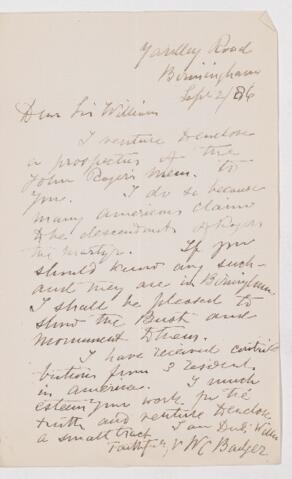 Yardley Road
Birmingham
Sept 2/86
Dear Sir William
I venture to enclose
a prospectus of the
John Rogers Mem. to
you. I do so because
many Americans claim
to be descendants of Rogers
the martyr. If you
should know any such
and they are in Birmingham
I shall be pleased to
show the Bust and
monument to them.
I have received contri-
butions from 3 resident
in America. I much
esteem your work for the
truth and venture to enclose
a small tract I am Dear Sir William
Faithfully yr W C Badger